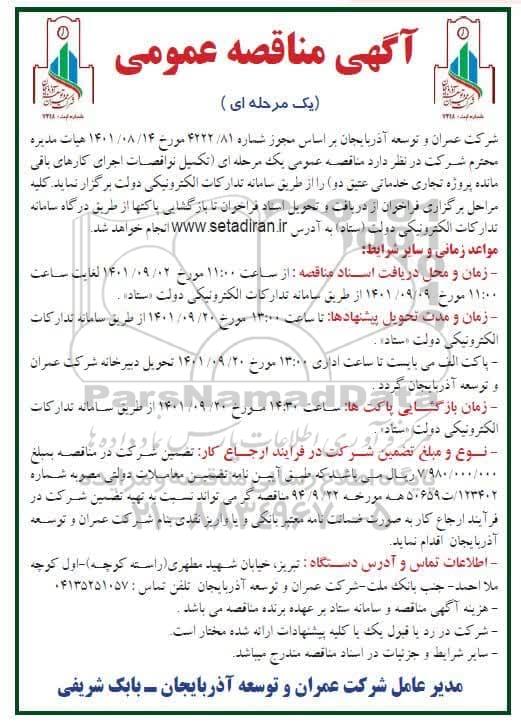 آگهی مناقصه عمومی
(یک مرحله ای )
شماره ثبت : ۷۴۱۸
شماره ثبت : ۷۴۱۸
شرکت عمران و توسعه آذربایجان بر اساس مجوز شماره ۴۲۲۲/۸۱ مورخ ۱۴۰۱/۰۸/۱۴ هیات مدیره
محترم شرکت در نظر دارد مناقصه عمومی یک مرحله ای (تکمیل نواقصات اجرای کارهای باقی
مانده پروژه تجاری خدماتی عتیق دو) را از طریق سامانه تدارکات الکترونیکی دولت برگزار نماید.کلیه
مراحل برگزاری فراخوان از دریافت و تحویل اسناد فراخوان تا بازگشایی پاکتها از طریق درگاه سامانه
تدارکات الکترونیکی دولت (ستاد) به آدرس www.setadiran.ir انجام خواهد شد.
مواعد زمانی و سایر شرایط:
- زمان و محل دریافت اسناد مناقصه : از ساعت ۱۱:۰۰ مورخ ۱۴۰۱/۰۹/۰۲ لغایت ساعت
۱۱:۰۰ مورخ ۱۴۰۱/۰۹/۰۹ از طریق سامانه تدارکات الکترونیکی دولت «ستاد» .
- زمان و مدت تحویل پیشنهادها: تا ساعت ۱۳:۰۰ مورخ ۱۴۰۱/۰۹/۲۰ از طریق سامانه تدارکات
الکترونیکی دولت «ستاد» .
- پاکت الف می بایست تا ساعت اداری ۱۳:۰۰ مورخ ۱۴۰۱/۰۹/۲۰ تحویل دبیرخانه شرکت عمران
و توسعه آذربایجان گردد .
- زمان بازگشایی پاکت ها: ساعت ۱۴:۳۰ مورخ ۱۴۰۱/۰۹/۲۰ از طریق سامانه تدارکات
الکترونیکی دولت «ستاد» .
- نوع و مبلغ تضمین شرکت در فرایند ارجاع کار: تضمین شرکت در مناقصه بمبلغ
۷/۹۸۰/۰۰۰/۰۰۰ ریال می باشد که طبق آئین نامه تضمین معاملات دولتی مصوبه شماره
۱۲۳۴۰۲/ت۵۰۶۵۹ هـ مورخه ۹۴/۹/۲۲ مناقصه گر می تواند نسبت به تهیه تضمین شرکت در
فرآیند ارجاع کار به صورت ضمانت نامه معتبر بانکی و یا واریز نقدی بنام شرکت عمران و توسعه
آذربایجان اقدام نماید.
- اطلاعات تماس و آدرس دستگاه : تبریز، خیابان شهید مطهری(راسته کوچه)-اول کوچه
ملا احمد- جنب بانک ملت-شرکت عمران و توسعه آذربایجان تلفن تماس : ۰۴۱۳۵۲۵۱۰۵۷
- هزینه آگهی مناقصه و سامانه ستاد بر عهده برنده مناقصه می باشد .
- شرکت در رد یا قبول یک یا کلیه پیشنهادات ارائه شده مختار است.
- سایر شرایط و جزئیات در اسناد مناقصه مندرج میباشد.
مدیر عامل شرکت عمران و توسعه آذربایجان - بابک شریفی
ParsNamadData
۰۲۱-۸۸۳۴۹۶۷۰-۵